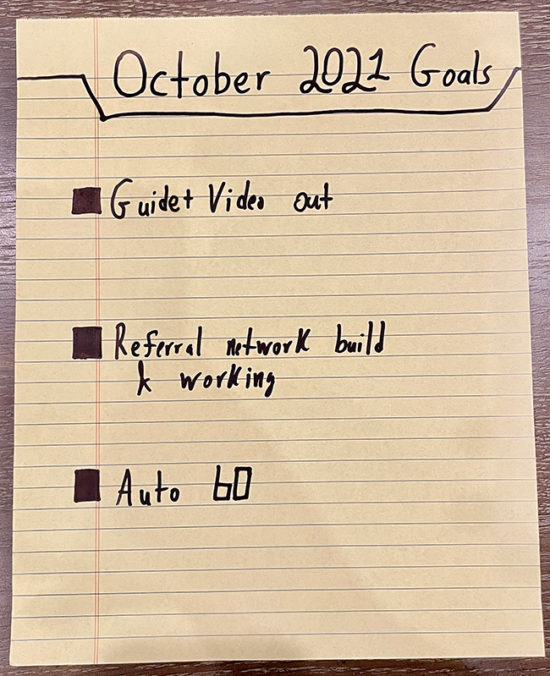 October 2021 Goals
Guide+ Video out
Referral network build
& working
Auto 60